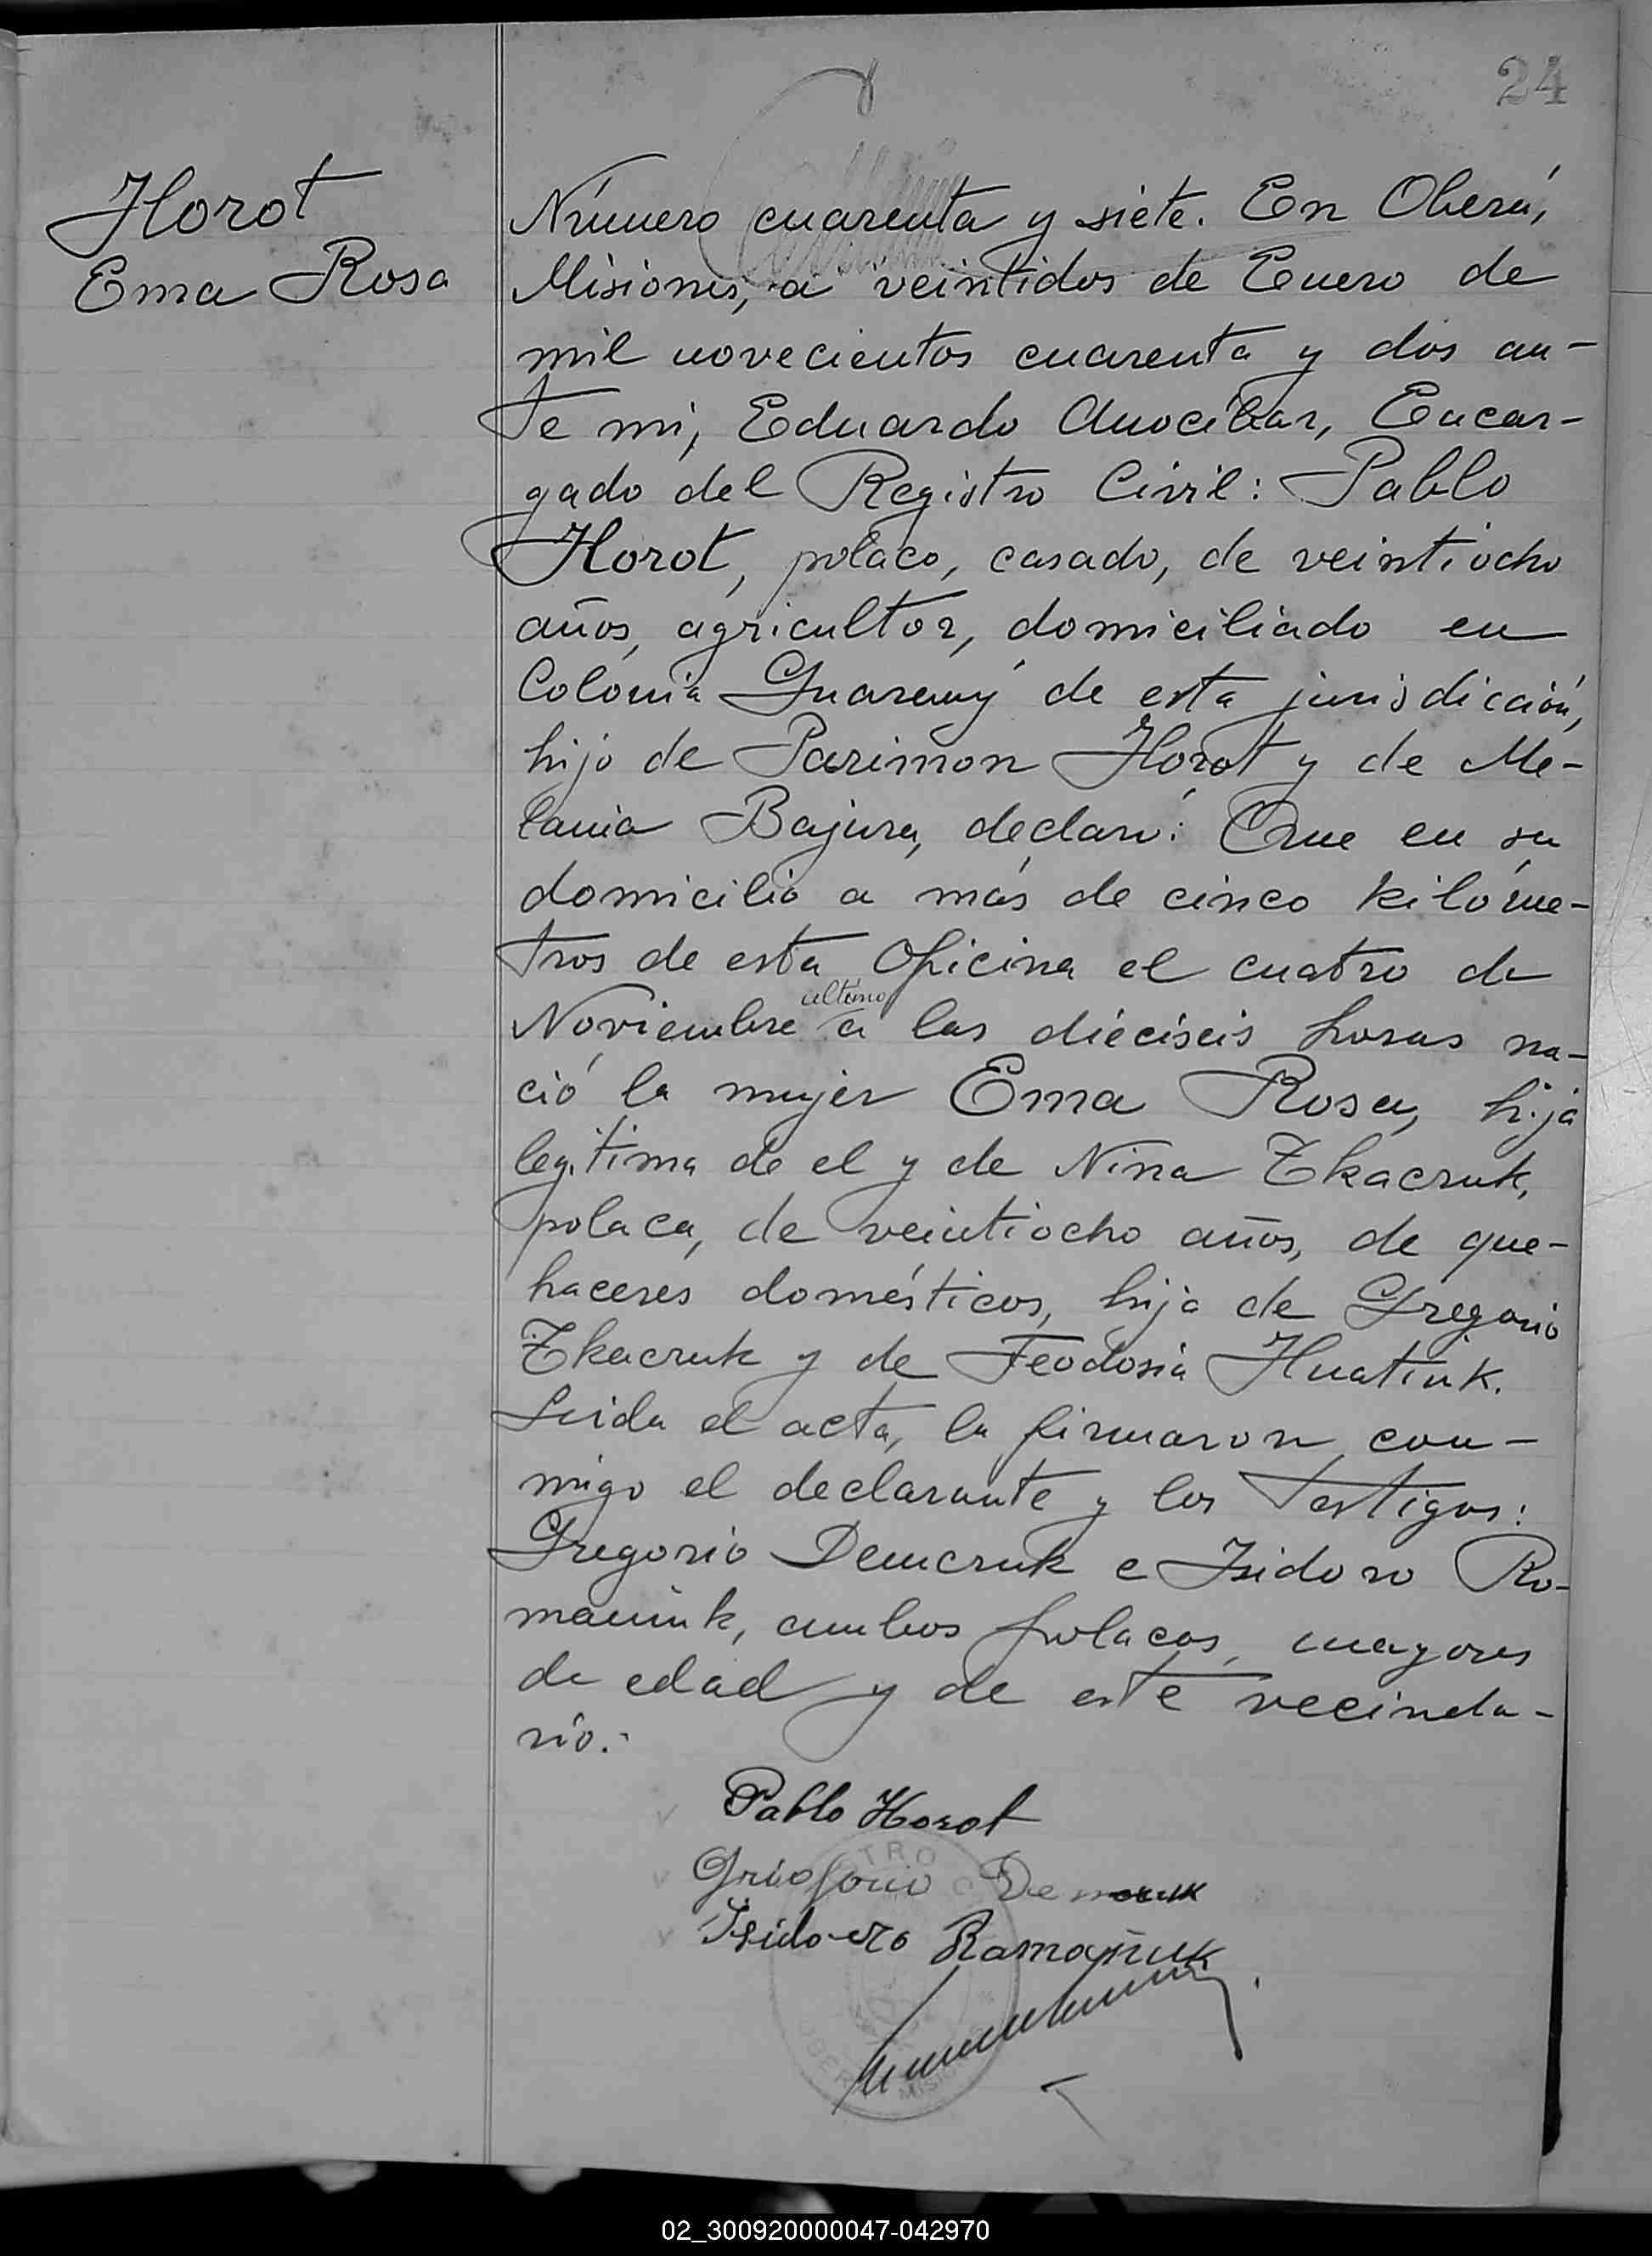 24
Horot
Ema Rosa
Número cuarenta y siete. En Oberá,
Misiones, a veintidos de Enero de
mil novecientos cuarenta y dos an-
te mi, Eduardo Anocibar, Encar-
gado del Registro Civil: Pablo
Horot, polaco, casado, de veintiocho
años, agricultor, domiciliado en
Colonia Guarany de esta jurisdicción,
hijo de Parimon Horot y de Me-
lania Bajura, declaró: Que en su
domicilio a más de cinco kilóme-
tros de esta Oficina el cuatro de
último
Noviembre a las dieciseis horas na-
ció la mujer Ema Rosa, hija
legitima de el y de Nina Tkacruk,
polaca, de veintiocho años, de que-
haceres domésticos, hija de Gregorio
Tkacruk y de Feodosia Huatiuk.
Leida el acta, la firmaron con-
migo el declarante y los testigos:
Gregorio Demcruk e Isidoro Ro-
maniuk, ambos polacos, mayores
de edad y de este vecinda-
rio.-
Pablo Horot
Demcruk
Isidoero Ramañuk
02_300920000047-042970